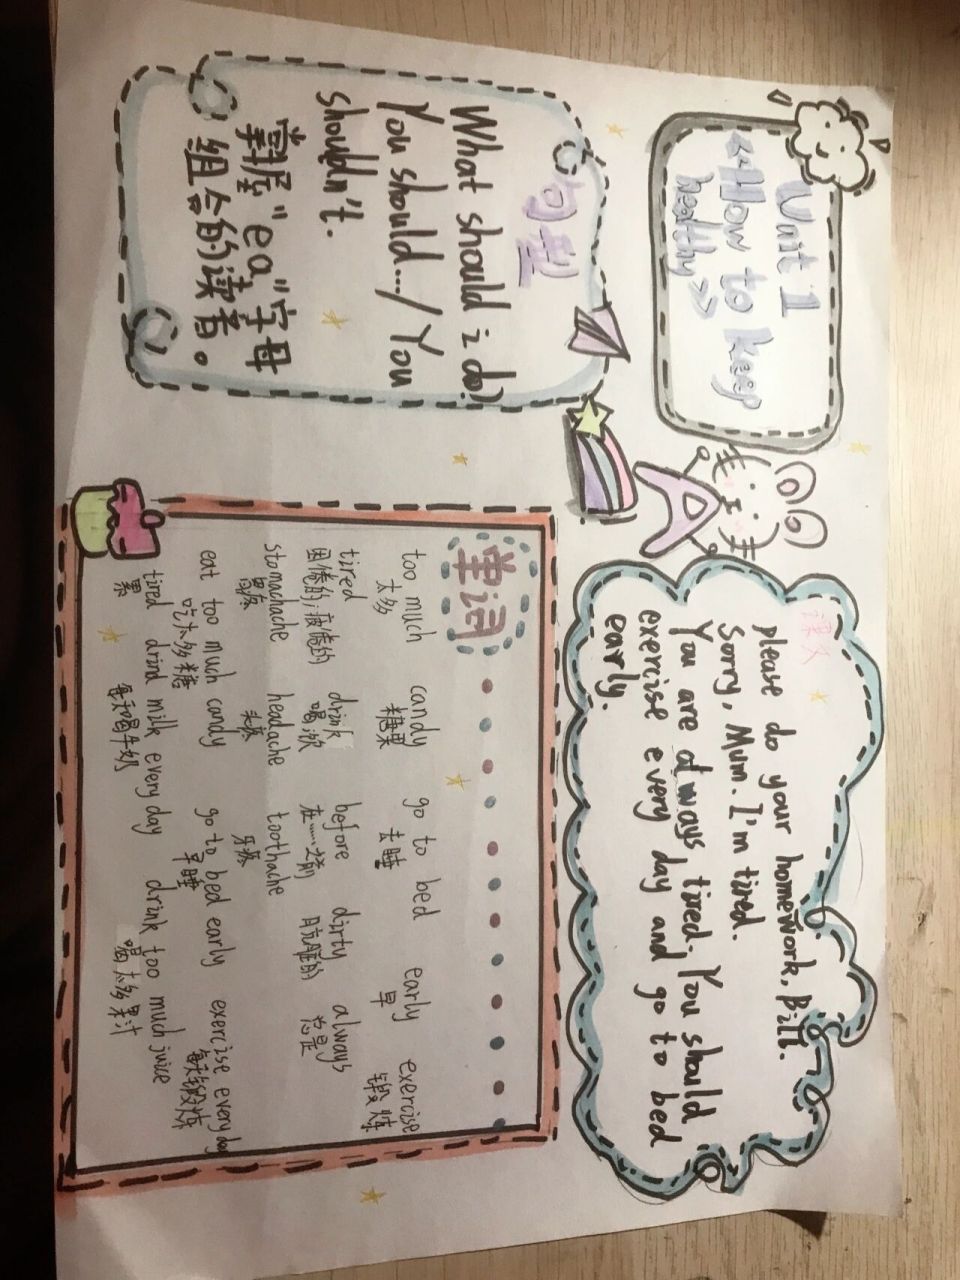 Unit 1
<<How to keep
healthy>>
句型
What should i do?
You should.../ You
shouldn't.
掌握"ea"字母
组合的读音。
课文
please do your homework, Bill.
Sorry, Mum. I'm tired.
You are always tired. You should
exercise every day and go to bed
early.
单词
too much candy go to bed early exercise
太多 糖果 去睡 早 锻炼
tired drink before dirty always
困倦的,疲倦的 喝,饮 在……之前 肮脏的 总是
stomachache headache toothache
胃疼 头疼 牙疼
eat too much candy go to bed early exercise every day
吃太多糖 早睡 每天锻炼
tired drink milk every day drink too much juice
累 每天喝牛奶 喝太多果汁